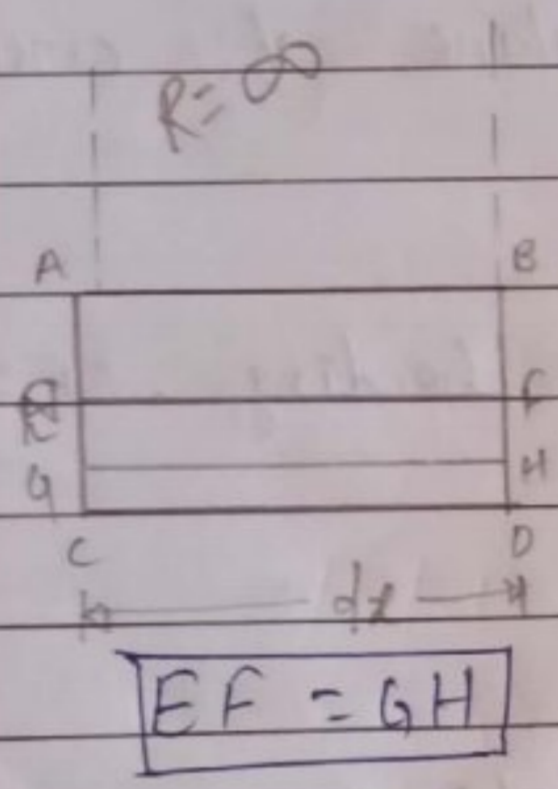 R = ∞
A B
E F
G H
C D
dx
EF = GH